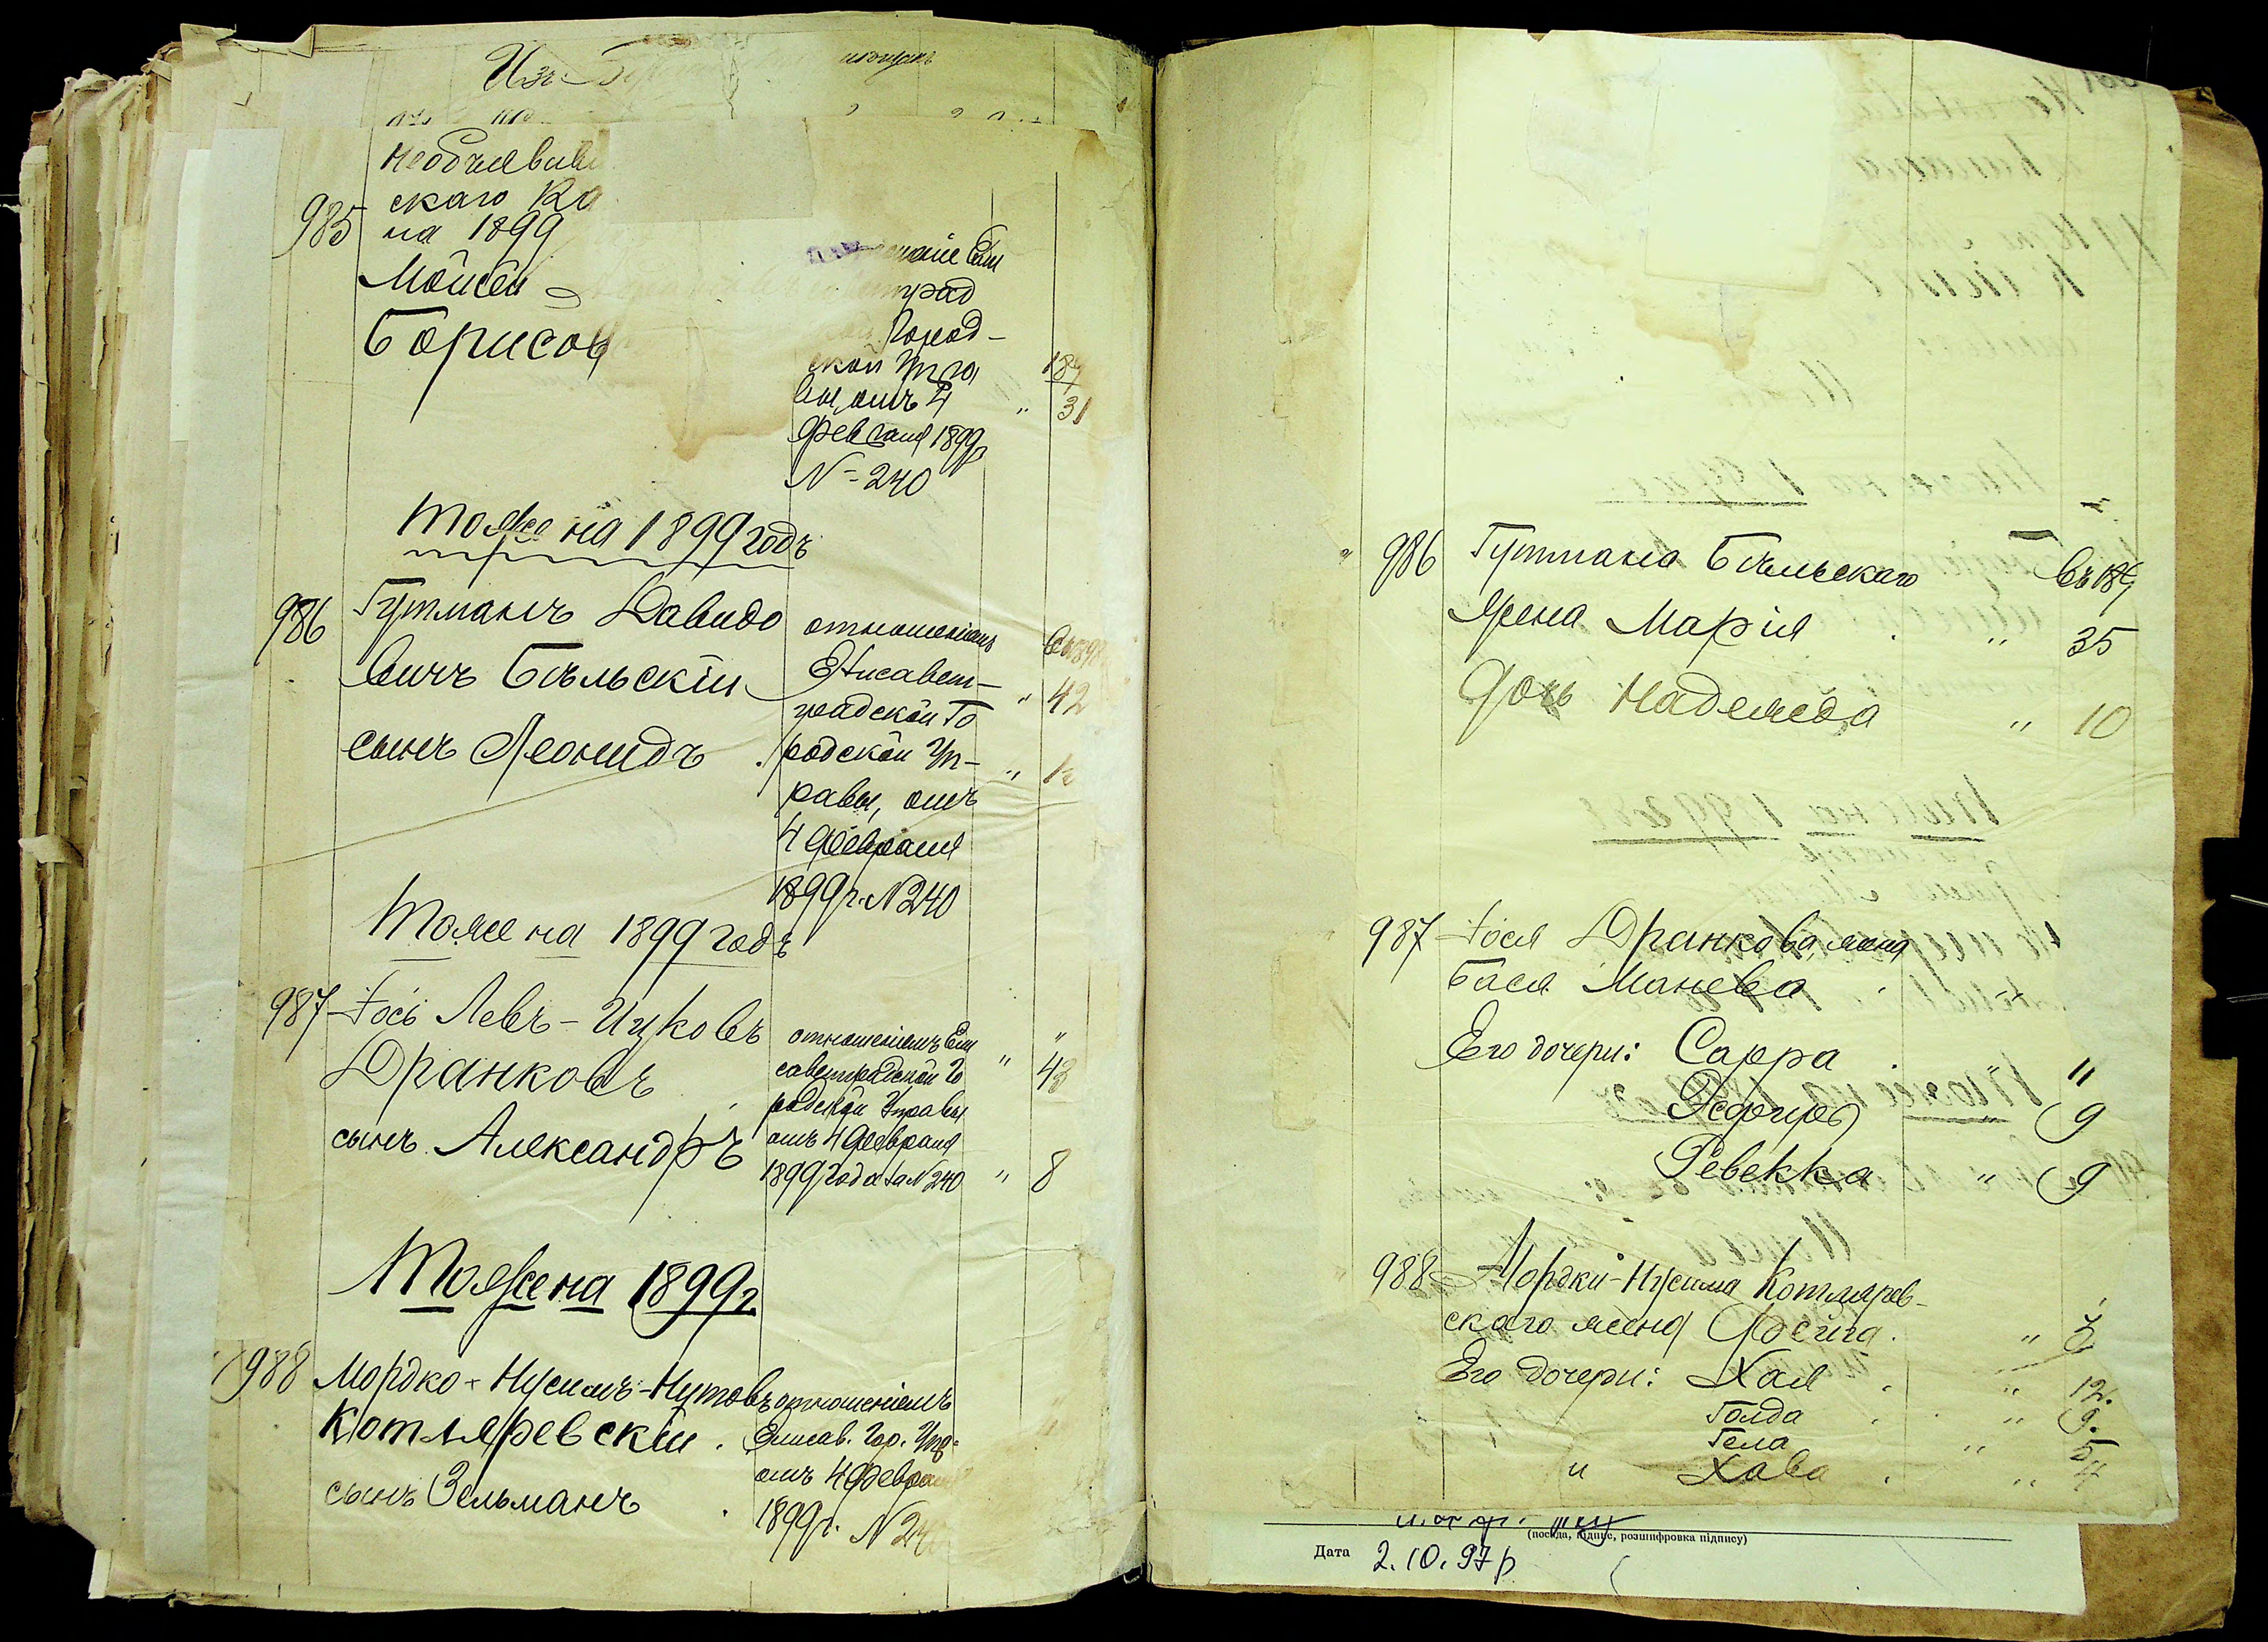 Изъ
Необъяви
скаго Ка
985 на 1899
Мойсей
Борисов
ской Упра
вы, отъ 4
Февраля 1899
N-240
187
" 31
Тоже на 1899 годъ
986 Гутманъ Давидо
вичъ Бѣльскій
сынъ Леонидъ
отношеніемъ
Елисавет-
градской Го
родской Уп-
равы, отъ
4 Февраля
1899 г. N 240
" 42
Тоже на 1899 годъ
987 Іось Левъ-Ицковъ
Дранковъ
сынъ Александръ
отношеніемъ Ели
саветградской Го
родской Управы
отъ 4 Февраля
1899 года за N 240
" 43
" 8
Тоже на 1899 г.
988 Мордко-Нусимъ-Нутовъ
Котляревскій.
сынъ Зельманъ
отношеніемъ
Елисав. Гор. Упр.
отъ 4 Февраля
1899 г. N 240
986 Гутмана Бѣльскаго
жена Марія " 35
дочь Надежда " 10
987 Іося Дранкова жена
Бася Манева "
Его дочери: Сарра "
Эсфирь " 9
Ревекка " 9
988 Мордки-Нусима Котлярев-
скаго жена Фейга "
Его дочери: Хая " 12.
Голда " 9.
Гела " 5
" Хава " 4
(посада, підпис, розшифровка підпису)
Дата 2.10.97 р